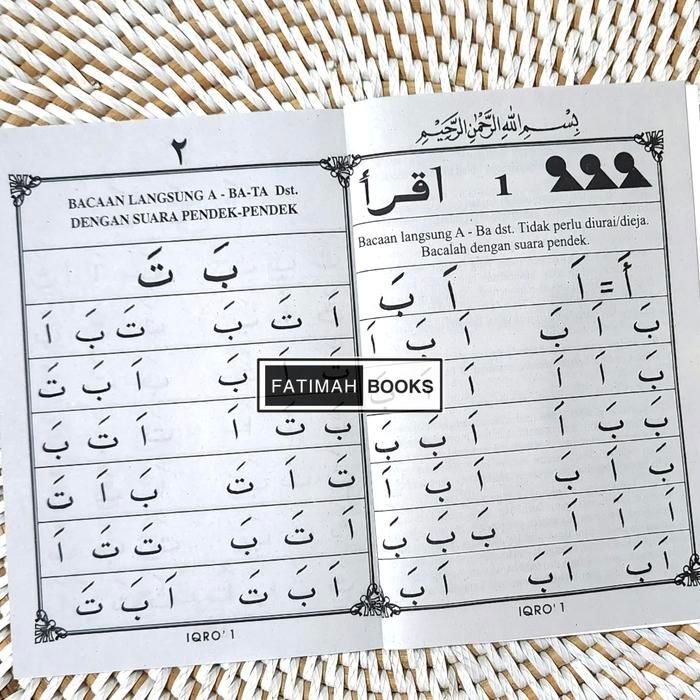 بِسْمِ اللهِ الرَّحْمٰنِ الرَّحِيْمِ
اقرأ 1
Bacaan langsung A - Ba dst. Tidak perlu diurai/dieja.
Bacalah dengan suara pendek.
أَ = اَ اَ بَ
بَ اَ بَ اَ بَ اَ
بَ اَ اَ اَ اَ
بَ بَ اَ اَ بَ بَ
بَ اَ بَ اَ بَ اَ
اَ اَ اَ بَ بَ بَ
اَ بَ اَ بَ اَ بَ
IQRO' 1
٢
BACAAN LANGSUNG A - BA-TA Dst.
DENGAN SUARA PENDEK-PENDEK
بَ تَ
اَ تَ بَ تَ بَ اَ
تَ اَ بَ اَ بَ تَ
بَ تَ اَ اَ تَ بَ
تَ اَ تَ بَ اَ تَ
اَ تَ بَ تَ تَ اَ
اَ بَ تَ اَ بَ تَ
IQRO' 1
FATIMAH BOOKS